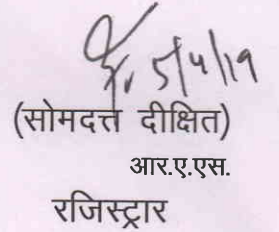 5/4/19
(सोमदत्त दीक्षित)
आर.ए.एस.
रजिस्ट्रार